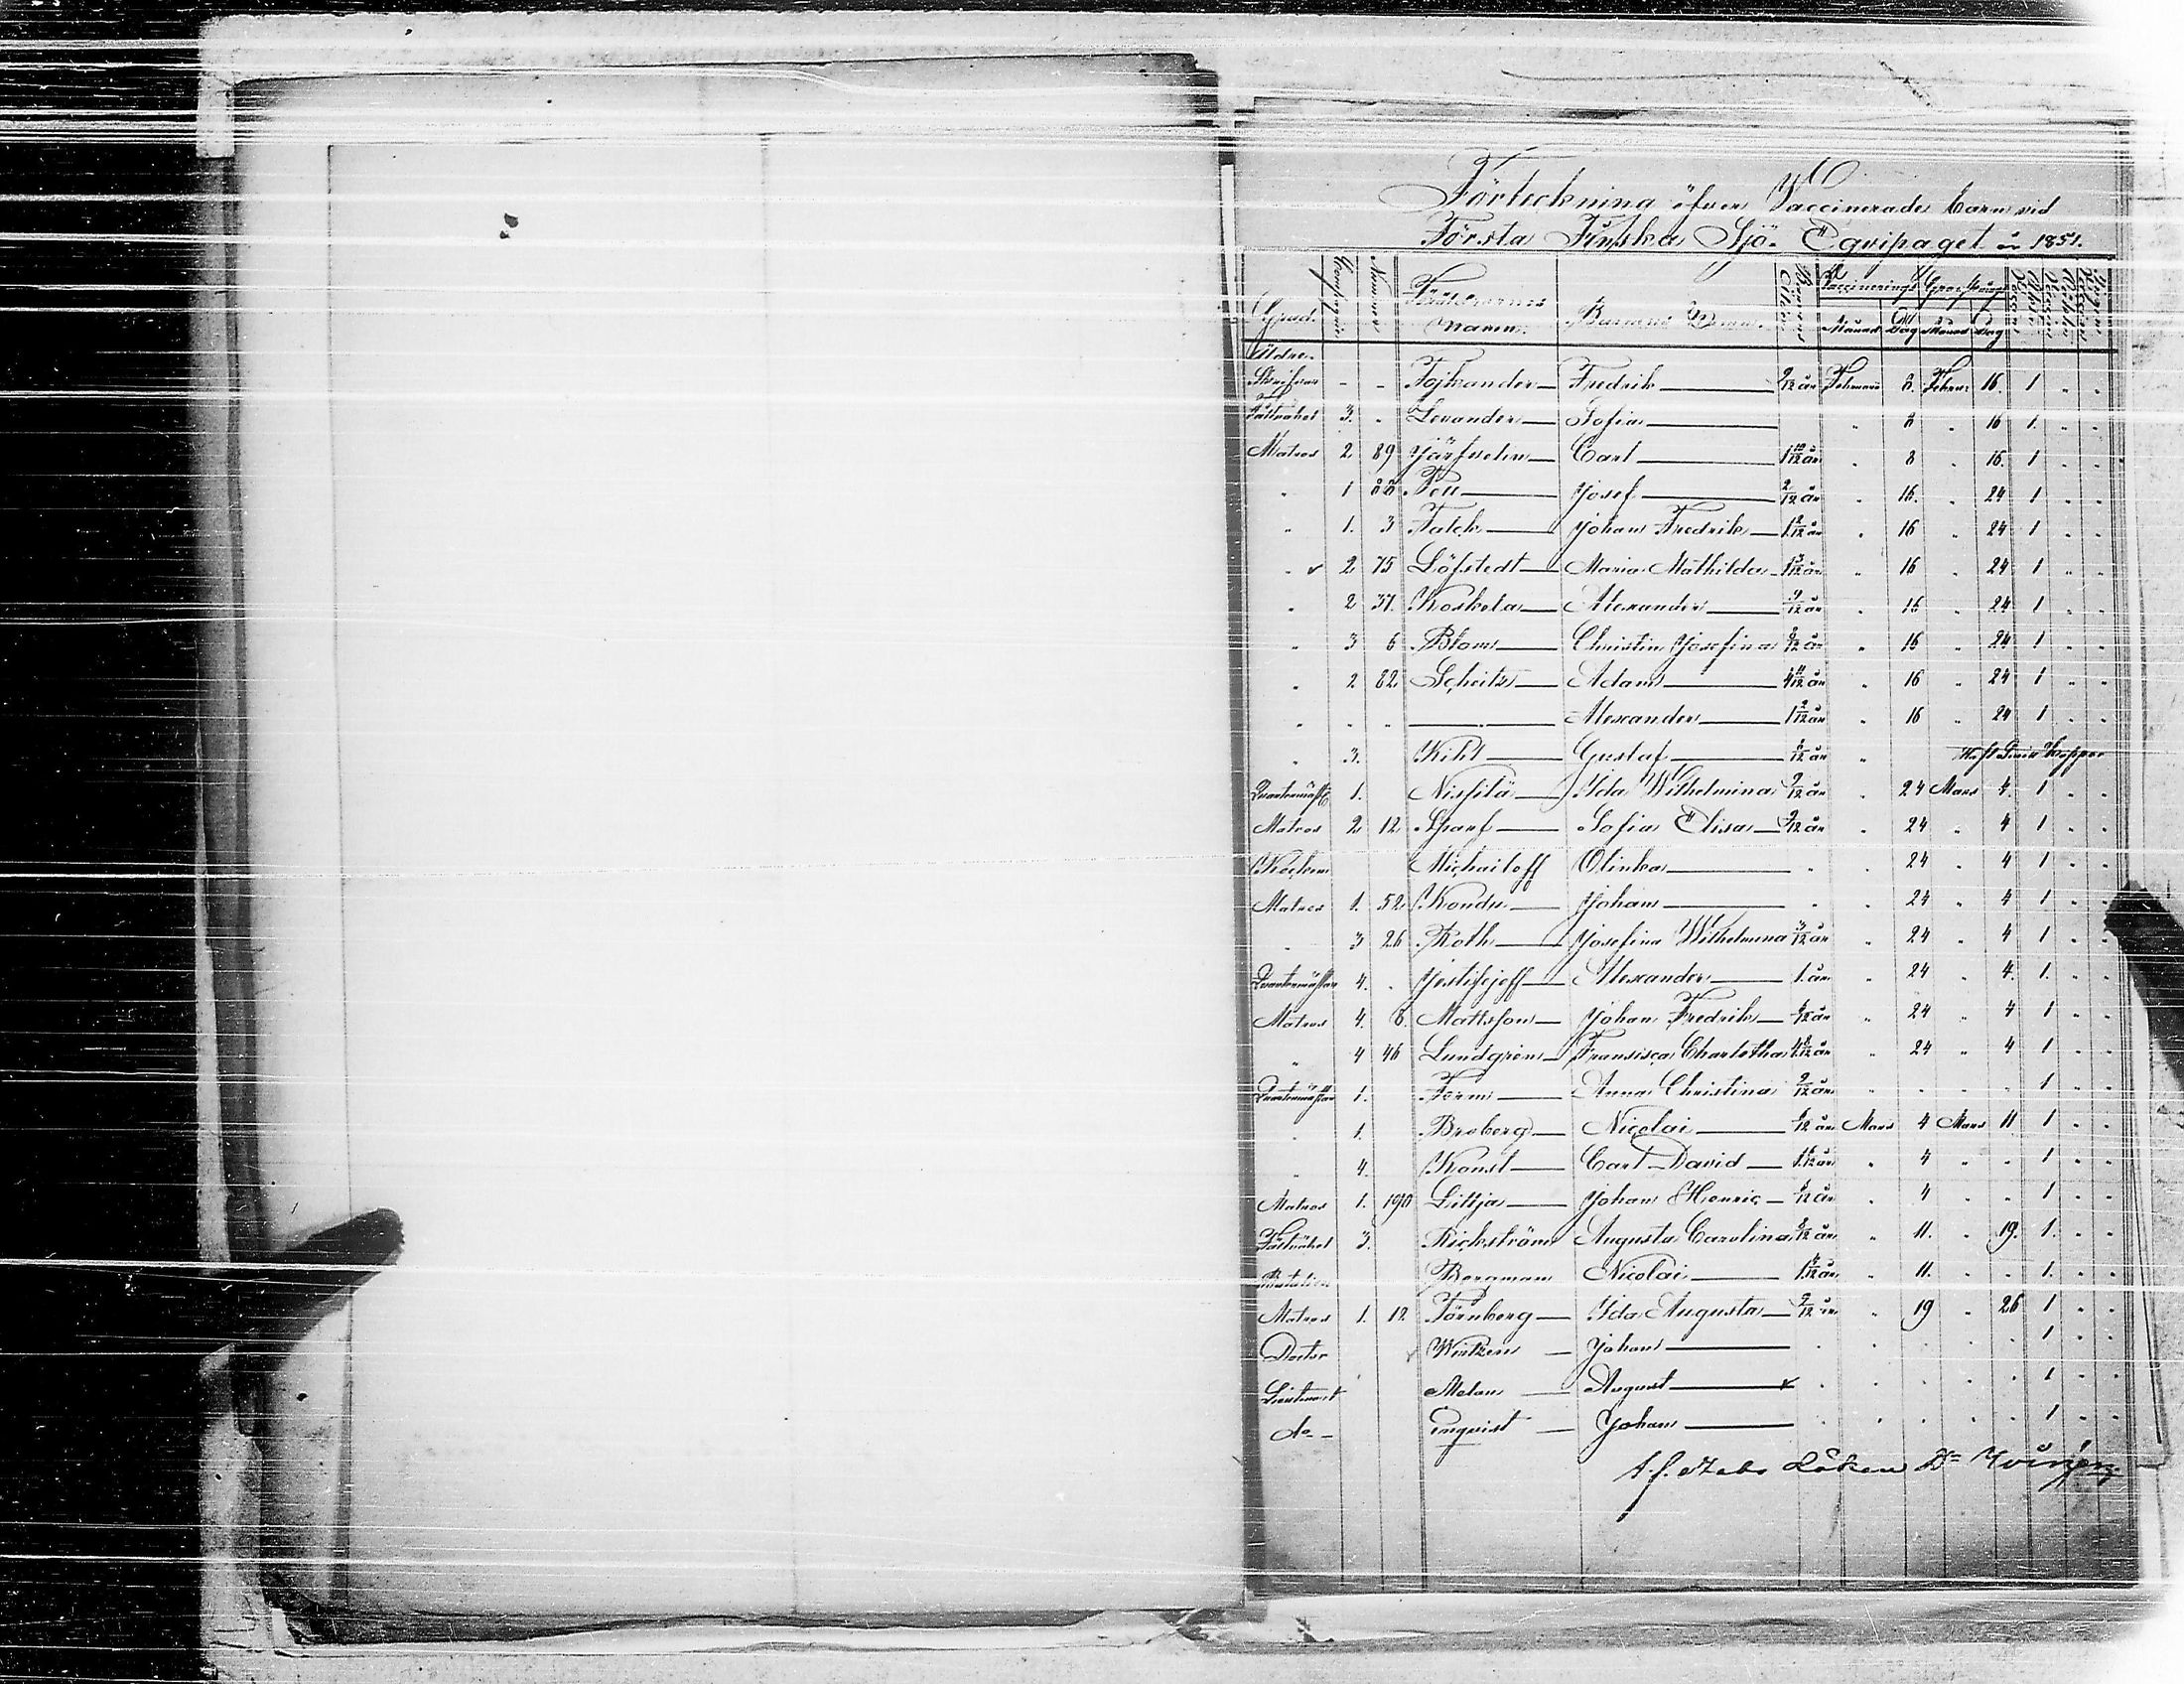 Förteckning öfver Vaccinerade barn vid
Första Finska Sjö-Equipaget år 1851.
Grad. Compagnie Nummer Föräldrarnes namn. Barnens Namn. Barnens Ålder Vaccinerings Månad Dag Månad Dag
Äldre
Skrifvare - - Tojkander Fredrik 9/12 år Februari 8. Febru: 16. 1 " "
Fältväbel 3. " Levander Sofia " 8 " 16 1. " "
Matros 2 89 Järfvelin Carl 1 10/12 år " 8 " 16. 1 " "
" 1 88 Fell Josef 2/12 år " 16. " 24 1 " "
" 1. 3 Falck Johan Fredrik 1 2/12 år " 16 " 24 1 " "
" 2 75 Löfstedt Maria Mathilda 1 3/12 år " 16 " 24 1 " "
" 2 37. Koskela Alexander 9/12 år " 16 " 24 1 " "
" 3 6 Blom Christin Josefina 8/12 år " 16 " 24 1 " "
" 2 82. Scheitz Adam 4 11/12 år " 16 " 24 1 " "
" " " " Alexander 1 2/12 år " 16 " 24 1 " "
" 3. Kihl Gustaf 8/12 år " Haft Koppor
Quartermäst: 1. Nissilä Ida Wilhelmina 9/12 år " 24 Mars 4. 1 " "
Matros 2 12 Skarf Sofia Elisa 9/12 år " 24 " 4 1 " "
Michailoff Olinka " " 24 " 4 1 " "
Matros 1. 52 Johan " " 24 " 4 1 " "
" 3 26 Roth Josefina Wilhelmina 3/12 år " 24 " 4 1 " "
Quartermästare 4. " Jestifejeff Alexander 1. år " 24 " 4. 1. " "
Matros 4. 8. Mattsson Johan Fredrik 6/12 år " 24 " 4 1 " "
" 4 46 Lundgren Fransisca Charlotha 4 8/12 år " 24 " 4 1 " "
Quartermästare 1. Anna Christina 9/12 år " " " " 1 " "
" 1. Broberg Nicolai 6/12 år Mars 4 Mars 11 1 " "
" 4. Konst Carl David 1 6/12 år " 4 " " 1 " "
Matros 1. 190 Lillja Johan Henric 6/12 år " 4 " " 1 " "
Fältväbel 3. Rickström Augusta Carolina 8/12 år " 11. " 19. 1. " "
Bergman Nicolai 1 6/12 år " 11. " " 1. " "
Matros 1. 12 Törnberg Ida Augusta 9/12 år " 19 " 26 1 " "
Doctor Johan " " " " 1 " "
Lieutenant Melan August " " " " 1 " "
do Johan " " " " 1 " "